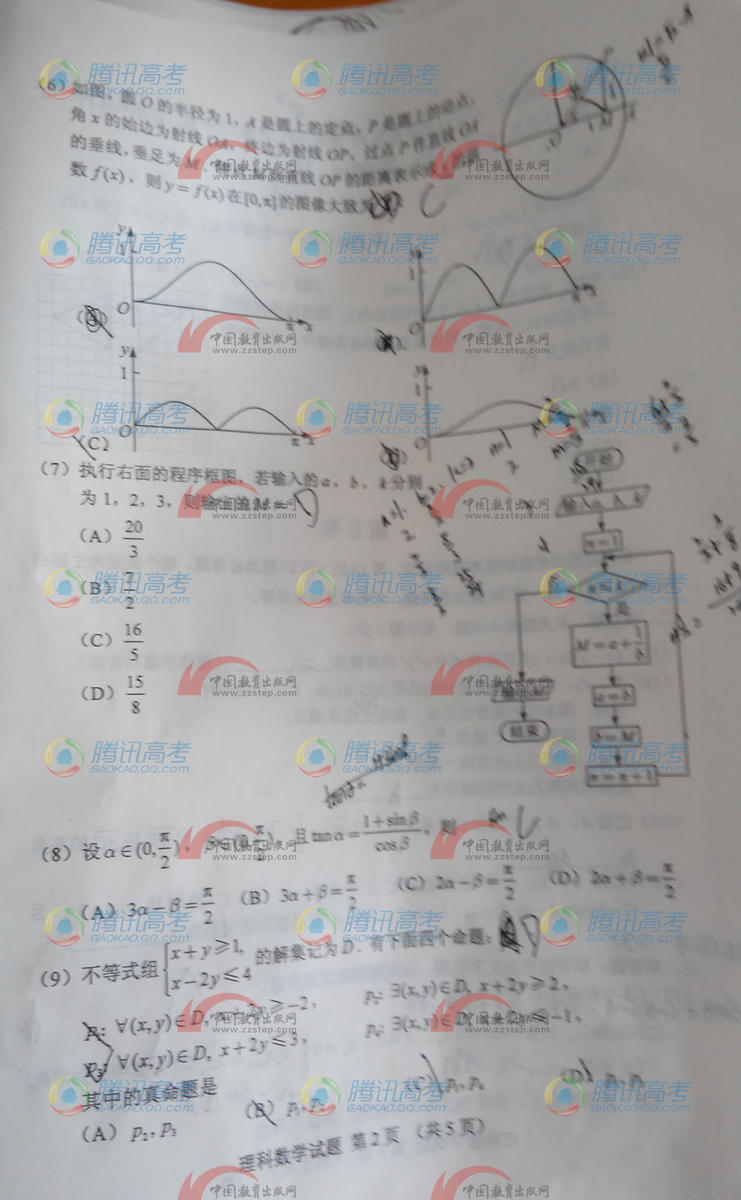 (6) 如图，圆 O 的半径为 1，A 是圆上的定点，P 是圆上的动点，
角 x 的始边为射线 OA，终边为射线 OP，过点 P 作直线 OA
的垂线，垂足为 M 直线 OP 的距离表示成 x 的函
数 f(x)，则 y = f(x) 在[0,π]的图像大致为
y
1
O
π
x
1
O
π
x
y
1
O
π
x
(C)
1
O
(7) 执行右面的程序框图，若输入的 a，b，k 分别
为 1，2，3，则输出的 M =
(A) 20/3
(B) 7/2
(C) 16/5
(D) 15/8
开始
输入 a, b, k
n = 1
n ≤ k
否
是
M = a + 1/b
a = b
b = M
n = n + 1
结束
(8) 设 α∈(0, π/2)，β∈(0, π/2)，且 tan α = (1 + sin β)/cos β，则
(A) 3α − β = π/2 (B) 3α + β = π/2 (C) 2α − β = π/2 (D) 2α + β = π/2
(9) 不等式组 { x + y ≥ 1, x − 2y ≤ 4 的解集记为 D、有下面四个命题：
P₁: ∀(x, y)∈D, x + 2y ≥ −2， P₂: ∃(x, y)∈D, x + 2y ≥ 2，
P₃: ∀(x, y)∈D, x + 2y ≤ 3， P₄: ∃(x, y)∈D, ≤ −1，
其中的真命题是
(A) p₂, P₃ (B) P₁, P₂ (C) P₁, P₄ (D)
理科数学试题 第 2 页 （共 5 页）
腾讯高考
GAOKAO.QQ.COM
中国教育出版网
www.zzstep.com